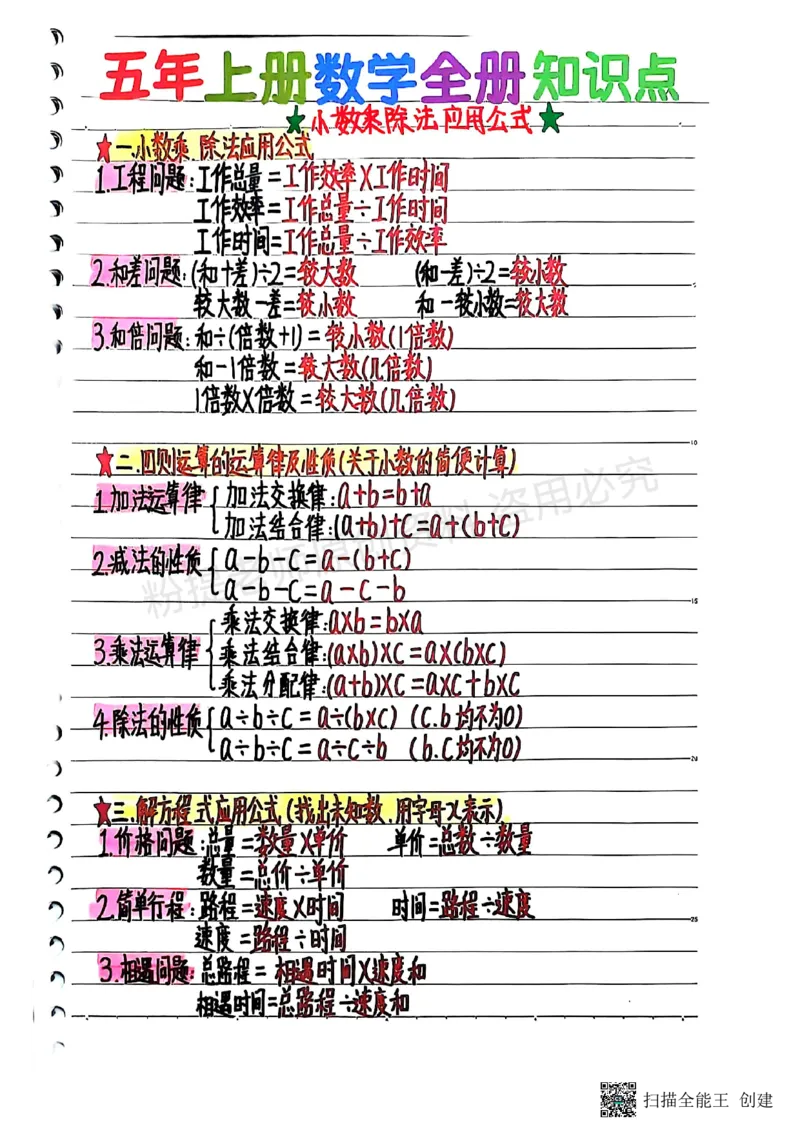 五年上册数学全册知识点
★小数乘除法应用公式★
★一.小数乘.除法应用公式
1.工程问题:工作总量=工作效率×工作时间
工作效率=工作总量÷工作时间
工作时间=工作总量÷工作效率
2.和差问题:(和+差)÷2=较大数 (和-差)÷2=较小数
较大数-差=较小数 和-较小数=较大数
3.和倍问题:和÷(倍数+1)=较小数(1倍数)
和-1倍数=较大数(几倍数)
1倍数×倍数=较大数(几倍数)
10
★二.四则运算的运算律及性质(关于小数的简便计算)
1.加法运算律{加法交换律:a+b=b+a
加法结合律:(a+b)+c=a+(b+c)
2.减法的性质{a-b-c=a-(b+c)
a-b-c=a-c-b
15
乘法交换律:a×b=b×a
3.乘法运算律{乘法结合律:(a×b)×c=a×(b×c)
乘法分配律:(a+b)×c=a×c+b×c
4.除法的性质{a÷b÷c=a÷(b×c) (c.b均不为0)
a÷b÷c=a÷c÷b (b.c均不为0)
20
★三.解方程式应用公式(找出未知数.用字母x表示)
1.价格问题:总量=数量×单价 单价=总数÷数量
数量=总价÷单价
2.简单行程:路程=速度×时间 时间=路程÷速度
25
速度=路程÷时间
3.相遇问题:总路程=相遇时间×速度和
相遇时间=总路程÷速度和
盗用必究
扫描全能王 创建